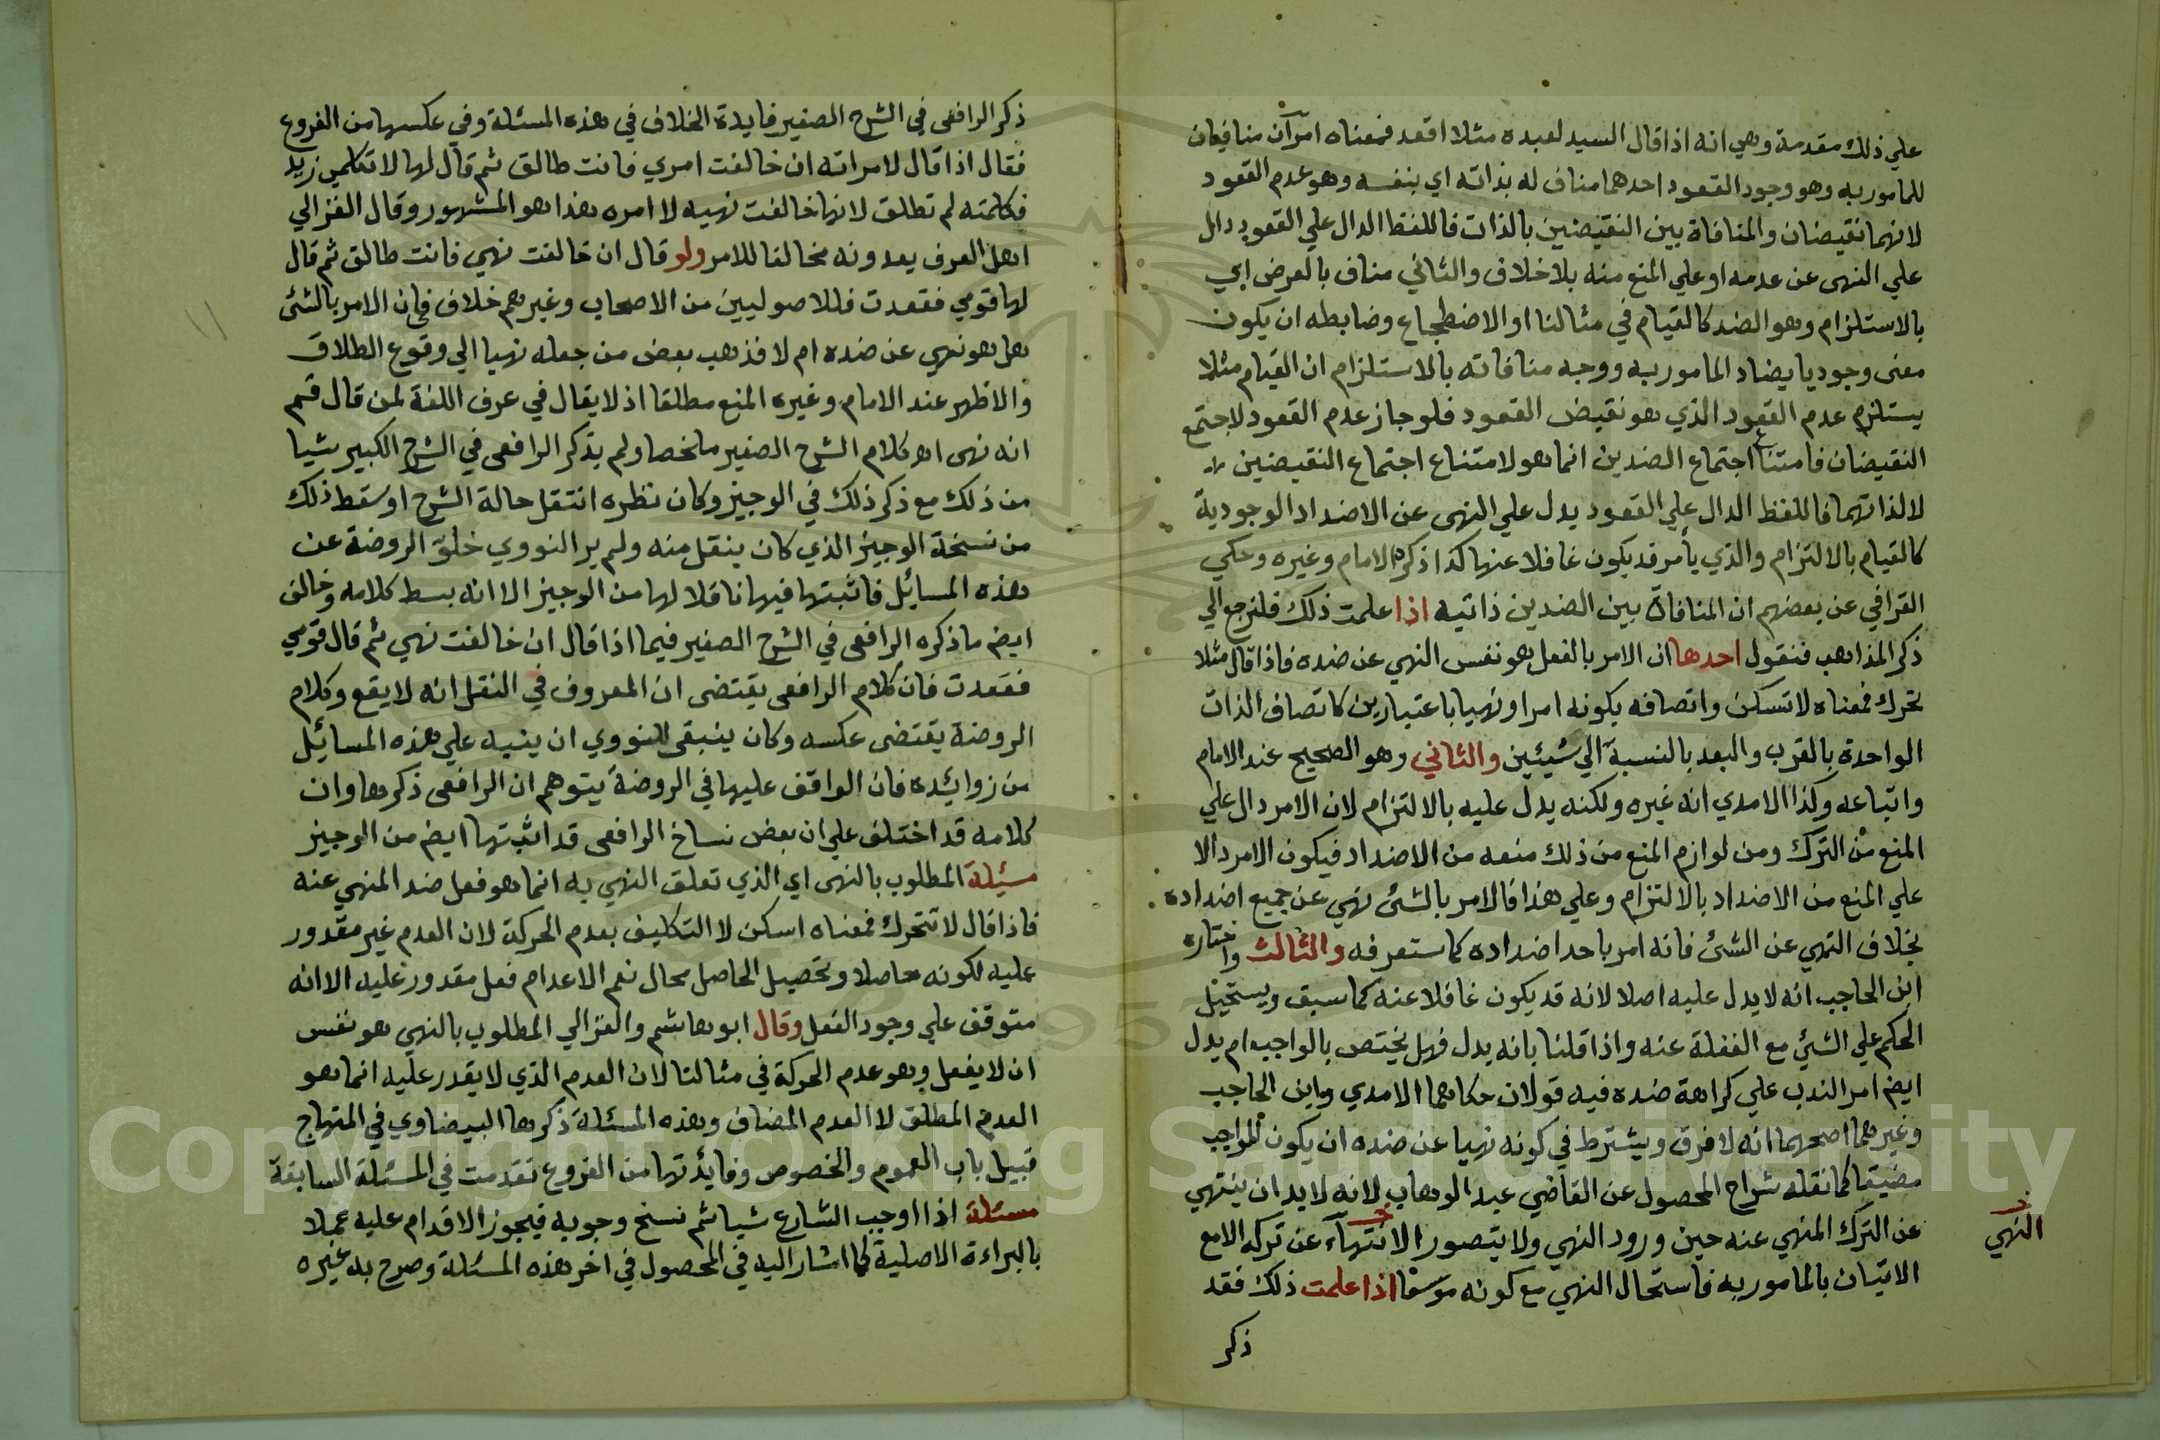 علي ذلك مقدمة وهي انه اذا قال السيد لعبده مثلا اقعد فمعناه امرآن منافيان
للمامور به وهو وجود القعود احدهما مناف له بذاته اي بنفسه وهو عدم القعود
لانهما نقيضان والمنافاة بين النقيضين بالذات فاللفظ الدال علي القعود دال
علي النهى عن عدمه او علي المنع منه بلا خلاف والثاني مناف بالعرض اي
بالاستلزام وهو الضد كالقيام في مثالنا او الاضطجاع وضابطه ان يكون
معنى وجوديا يضاد المامور به ووجه منافاته بالاستلزام ان القيام مثلا
يستلزم عدم القعود الذي هو نقيض القعود فلو جاز عدم القعود لاجتمع
النقيضان فامتناع اجتماع الضدين انما هو لامتناع اجتماع النقيضين
لا لذاتهما فاللفظ الدال علي القعود يدل علي النهى عن الاضداد الوجودية
كالقيام بالالتزام والذي يأمر قد يكون غافلا عنها كذا ذكره الامام وغيره وحكي
القرافي عن بعضهم ان المنافاة بين الضدين ذاتيه اذا علمت ذلك فلنرجع الي
ذكر المذاهب فنقول احدها ان الامر بالفعل هو نفس النهي عن ضده فاذا قال مثلا
تحرك فمعناه لا تسكن واتصافه بكونه امرا ونهيا باعتبارين كاتصاف الذات
الواحدة بالقرب والبعد بالنسبة الي شيئين والثاني وهو الصحيح عند الامام
واتباعه وكذا الامدي انه غيره ولكنه يدل عليه بالالتزام لان الامر دال علي
المنع من الترك ومن لوازم المنع من ذلك منعه من الاضداد فيكون الامر دالا
علي المنع من الاضداد بالالتزام وعلي هذا فالامر بالشئ نهي عن جميع اضداده
بخلاف النهي عن الشئ فانه امر باحد اضداده كما ستعرفه والثالث واختاره
ابن الحاجب انه لا يدل عليه اصلا لانه قد يكون غافلا عنه كما سبق ويستحيل
الحكم علي الشئ مع الغفلة عنه واذا قلنا بانه يدل فهل يختص بالواجب ام يدل
ايض امر الندب علي كراهة ضده فيه قولان حكاهما الامدي وابن الحاجب
وغيرهما اصحهما انه لا فرق ويشترط في كونه نهيا عن ضده ان يكون الواجب
مضيقا كما نقله شراح المحصول عن القاضي عبد الوهاب لانه لا بد ان ينتهي
عن الترك المنهي عنه حين ورود النهي ولا يتصور الانتهآء عن تركه الا مع
الاتيان بالمامور به فاستحال النهي مع كونه موسعا اذا علمت ذلك فقد
ذكر
النهي
ذكر الرافعى في الشرح الصغير فايدة الخلاف في هذه المسئلة وفي عكسها من الفروع
فقال اذا قال لامراته ان خالفت امري فانت طالق ثم قال لها لا تكلمي زيد
فكلمته لم تطلق لانها خالفت نهيه لا امره هذا هو المشهور وقال الغزالي
اهل العرف يعدونه مخالفا للامر ولو قال ان خالفت نهيي فانت طالق ثم قال
لها قومي فقعدت فللاصوليين من الاصحاب وغيرهم خلاف في ان الامر بالشئ
هل هو نهي عن ضده ام لا فذهب بعض من جعله نهيا الي وقوع الطلاق
والاظهر عند الامام وغيره المنع مطلقا اذ لا يقال في عرف اللغة لمن قال قم
انه نهى اه كلام الشرح الصغير ملخصا ولم يذكر الرافعى في الشرح الكبير شيا
من ذلك مع ذكر ذلك في الوجيز وكان نظره انتقل حالة الشرح او سقط ذلك
من نسخة الوجيز الذي كان ينقل منه ولم ير النووي خلو الروضة عن
هذه المسايل فاثبتها فيها ناقلا لها من الوجيز الا انه بسط كلامه وخالف
ايض ما ذكره الرافعى في الشرح الصغير فيما اذا قال ان خالفت نهيي ثم قال قومي
فقعدت فان كلام الرافعى يقتضى ان المعروف في النقل انه لا يقع وكلام
الروضة يقتضى عكسه وكان ينبغى للنووي ان ينبه علي هذه المسايل
من زوائده فان الواقف عليها في الروضة يتوهم ان الرافعى ذكرها وان
كلامه قد اختلف علي ان بعض نساخ الرافعى قد اثبتها ايض من الوجيز
مسئلة المطلوب بالنهى اي الذي تعلق النهي به انما هو فعل ضد المنهي عنه
فاذا قال لا تتحرك فمعناه اسكن لا التكليف بعدم الحركة لان العدم غير مقدور
عليه لكونه حاصلا وتحصيل الحاصل محال نعم الاعدام فعل مقدور عليه الا انه
متوقف علي وجود الفعل وقال ابو هاشم والغزالي المطلوب بالنهي هو نفس
ان لا يفعل وهو عدم الحركة في مثالنا لان العدم الذي لا يقدر عليه انما هو
العدم المطلق لا العدم المضاف وهذه المسئلة ذكرها البيضاوي في المنهاج
قبيل باب العموم والخصوص وفائدتها من الفروع تقدمت في المسئلة السابقة
مسئلة اذا اوجب الشارع شيا ثم نسخ وجوبه فيجوز الاقدام عليه عملا
بالبراءة الاصلية كما اشار اليه في المحصول في اخر هذه المسئلة وصرح به غيره